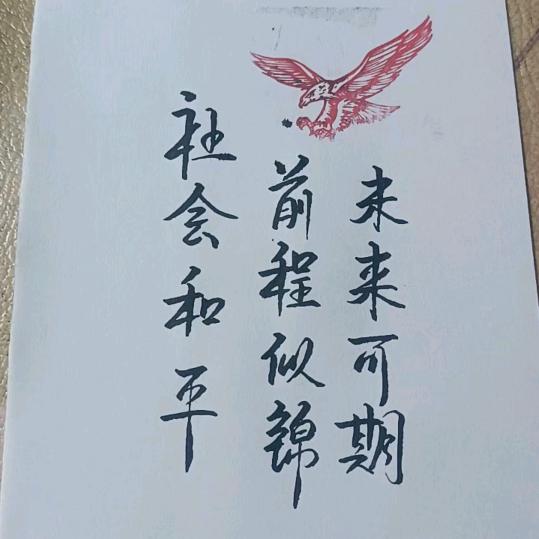 未来可期
前程似锦
社会和平